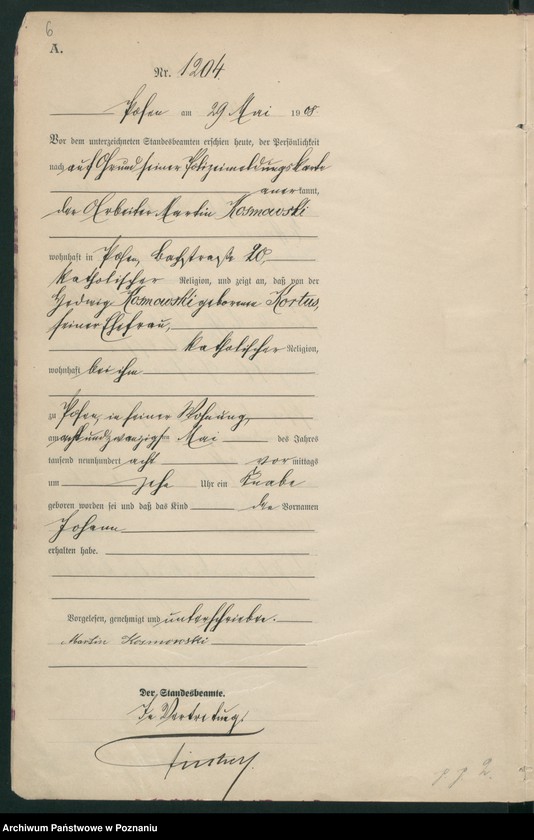 6
A.
Nr. 1204.
Posen am 29 Mai 1908
Vor dem unterzeichneten Standesbeamten erschien heute, der Persönlichkeit
nach auf Grund seiner Polizeimeldungskarte
anerkannt,
der Arbeiter Martin Kosmowski
wohnhaft in Posen, Bachstraße 20,
katholischer Religion, und zeigt an, daß von der
Hedwig Kosmowski geborenen Kortus,
seiner Ehefrau,
katholischer Religion,
wohnhaft bei ihm
zu Posen, in seiner Wohnung,
am achtundzwanzigsten Mai des Jahres
tausend neunhundert acht vormittags
um zehn Uhr ein Knabe
geboren worden sei und daß das Kind die Vornamen
Johann
erhalten habe.
Vorgelesen, genehmigt und unterschrieben.
Martin Kosmowski
Der Standesbeamte.
In Vertretung.
Archiwum Państwowe w Poznaniu